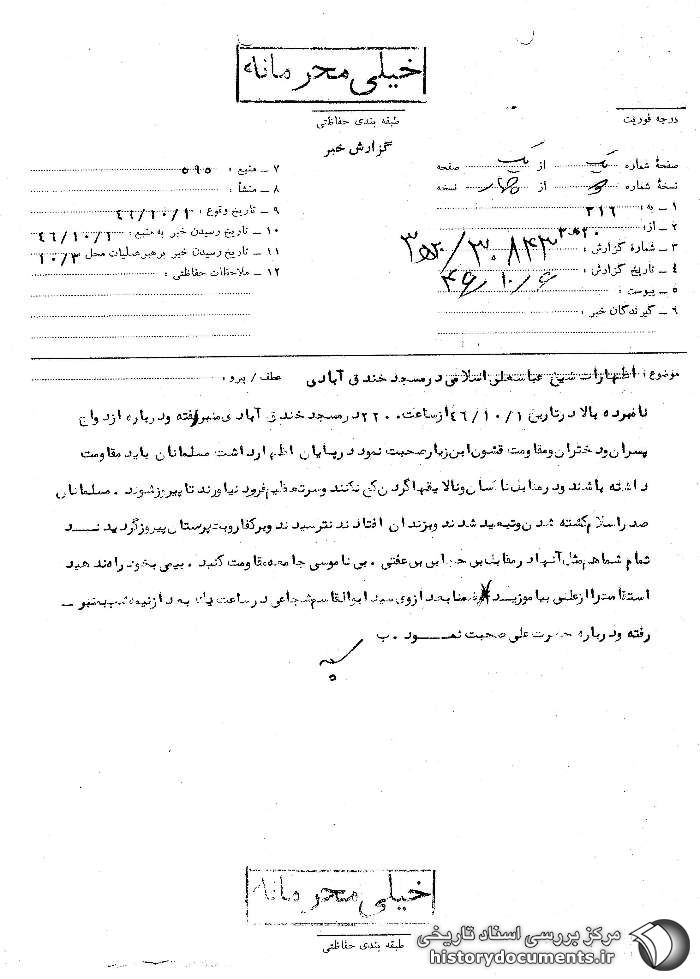 خیلی محرمانه
طبقه بندی حفاظتی
درجه فوریت
گزارش خبر
صفحهٔ شماره یک از یک صفحه
نسخهٔ شماره از چهار نسخه
۱ ـ به : ۳۱۶
۲ ـ از : ۲۰ه۳
۳ ـ شمارهٔ گزارش :
۴ ـ تاریخ گزارش : ۴۶/۱۰/۶
۵ ـ پیوست :
۶ ـ گیرندگان خبر :
۷ ـ منبع : ۵۹۵
۸ ـ منشأ :
۹ ـ تاریخ وقوع : ۴۶/۱۰/۱
۱۰ ـ تاریخ رسیدن خبر به منبع : ۴۶/۱۰/۱
۱۱ ـ تاریخ رسیدن خبر برهبر عملیات محل ۱۰/۳
۱۲ ـ ملاحظات حفاظتی :
موضوع : اظهارات شیخ عباسعلی اسلامی در مسجد خندق آبادی عطف / پیرو :
نامبرده بالا در تاریخ ۴۶/۱۰/۱ از ساعت ۲۲۰۰ در مسجد خندق آبادی منبر رفته و درباره ازدواج
پسران و دختران و مقاومت قشون ابن زیاد صحبت نمود در پایان اظهار داشت مسلمانان باید مقاومت
داشته باشند و در مقابل ناکسان و نالایقها گردن کج نکنند و سر تعظیم فرود نیاورند تا پیروز شوند . مسلمانان
صدر اسلام کشته شدند و تبعید شدند و بزندان افتادند نترسیدند و بر کفار و بت پرستان پیروز گردیدند
تمام شما هم مثل آنها در مقابل بی حجابی بی عفتی . بی ناموسی جامعه مقاومت کنید . بیمی بخود راه ندهید
استقامت را از علی بیاموزید ضمنا بعد از وی سید ابوالقاسم شجاعی در ساعت یک بعد از نیمه شب به منبر ـ
رفته و درباره حضرت علی صحبت نمود . ب
خیلی محرمانه
طبقه بندی حفاظتی
مرکز بررسی اسناد تاریخی
historydocuments.ir